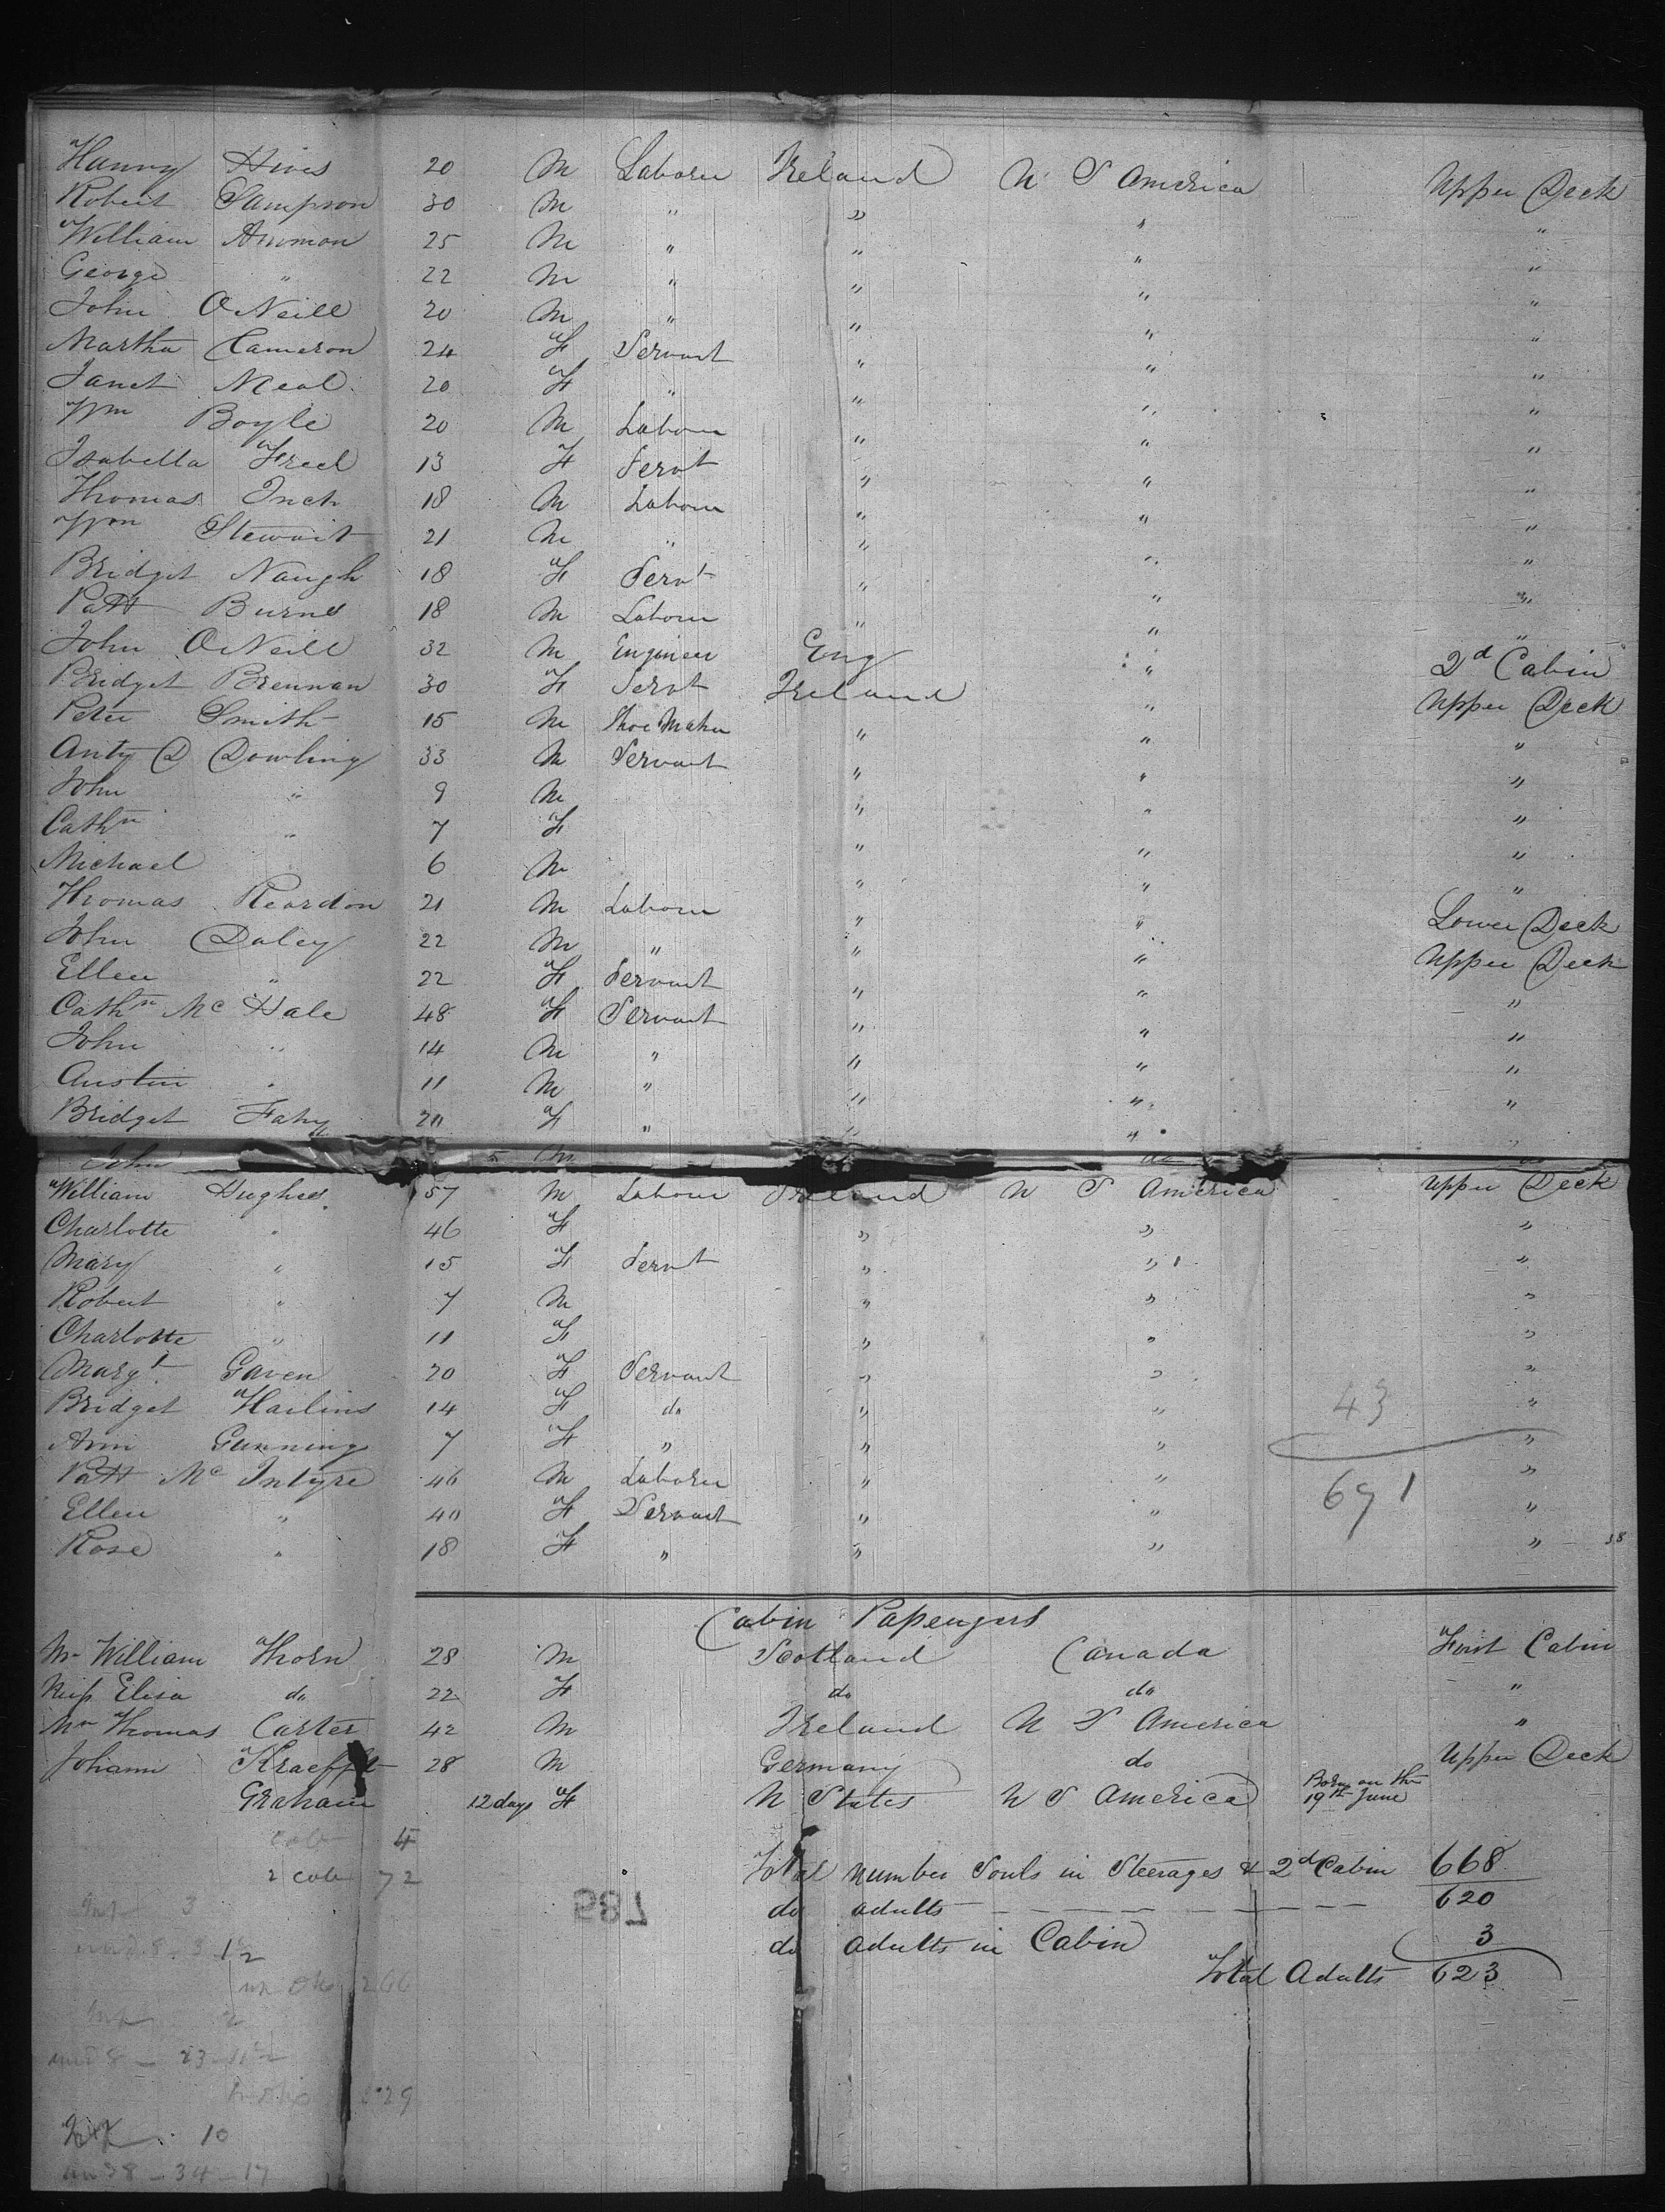 Hanny Hives 20 M Laborer Ireland U S America Upper Deck
Robert Sampson 30 M " " " "
William Ammon 25 M " " " "
George " 22 M " " " "
John O Neill 20 M " " " "
Martha Cameron 24 F Servant " " "
Janet Neal 20 F " " " "
Wm Boyle 20 M Labour " " "
Isabella Freel 13 F Servt " " "
Thomas Inch 18 M Labour " " "
Wm Stewart 21 M " " " "
Bridget Naugh 18 F Servt " " "
Patt Burnes 18 M Labour " " "
John O Neill 32 M Engineer Eng " 2d Cabin
Bridget Brennan 30 F Servt Ireland " Upper Deck
Peter Smith 15 M Shoe Maker " " "
Anty D Dowling 33 M Servant " " "
John " 9 M " " "
Cathn " 7 F " " "
Michael 6 M " " "
Thomas Reardon 21 M Labour " " Lower Deck
John Daley 22 M " " " Upper Deck
Ellen " 22 F Servant " " "
Cathn Mc Hale 48 F Servant " " "
John " 14 M " " " "
Austin " 11 M " " " "
Bridget Fahy 20 F " " "
John M do do
William Hughes 57 M Labour Ireland U S America Upper Deck
Charlotte " 46 F " " "
Mary " 15 F Servt " " "
Robert " 7 M " " "
Charlotte " 11 F " " "
Margt Gaven 20 F Servant " " "
Bridget Hailins 14 F do " " 43 "
Ann Gunning 7 F " " " "
Patt Mc Intyre 46 M Laborer " " 691 "
Ellen " 40 F Servant " " "
Rose " 18 F " " " " 38
Cabin Passengers
Mr William Thorn 28 M Scotland Canada First Cabin
Miss Elisa do 22 F do do "
Mr Thomas Carter 42 M Ireland U S America "
Johann Kraefft 28 M Germany do Upper Deck
Graham 12 days F U States U S America Born on the 19th June
4
2 cab 72
Total number Souls in Steerages & 2d Cabin 668
do adults 620
789
do adults in Cabin 3
Total Adults 623
10
34 - 17